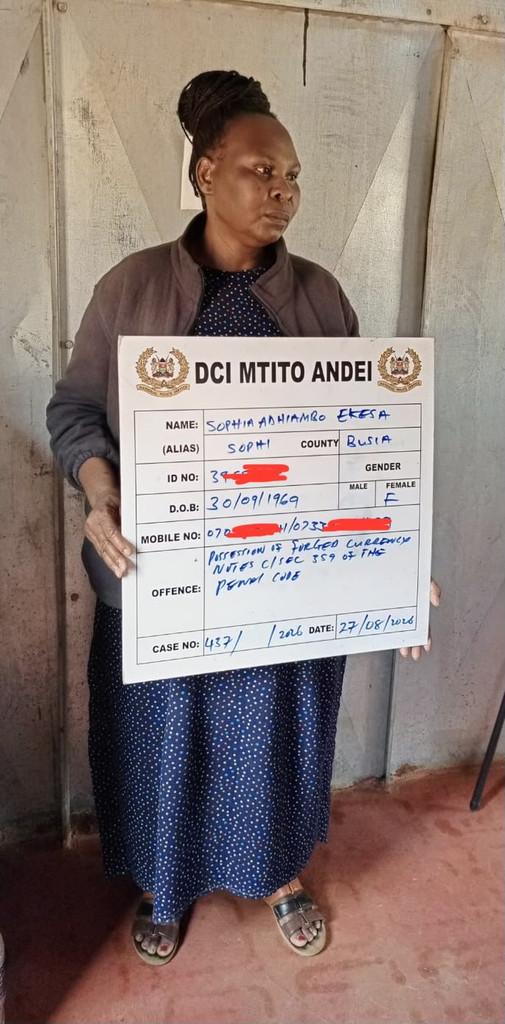 DCI MTITO ANDEI
NAME: SOPHIA ADHIAMBO EKESA
(ALIAS) SOPHI COUNTY BUSIA
ID NO: 39 GENDER
MALE FEMALE
D.O.B: 30/09/1969 F
MOBILE NO: 070 /0733
OFFENCE: POSSESSION OF FORGED CURRENCY
NOTES C/SEC 359 OF THE
PENAL CODE
CASE NO: 437/ /2026 DATE: 27/08/2026